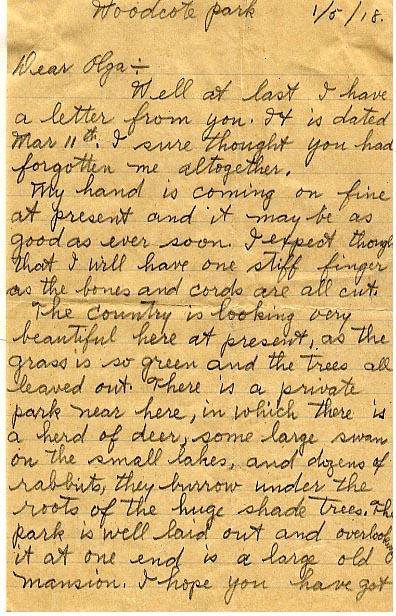 Woodcote park 1/5/18.
Dear Olga :-
Well at last I have
a letter from you. It is dated
Mar 11th. I sure thought you had
forgotten me altogether.
My hand is coming on fine
at present and it may be as
good as ever soon. I expect though
that I will have one stiff finger
as the bones and cords are all cut.
The country is looking very
beautiful here at present, as the
grass is so green and the trees all
leaved out. There is a private
park near here, in which there is
a herd of deer, some large swan
on the small lakes, and dozens of
rabbits, they burrow under the
roots of the huge shade trees. The
park is well laid out and overlooking
it at one end is a large old
mansion. I hope you have got